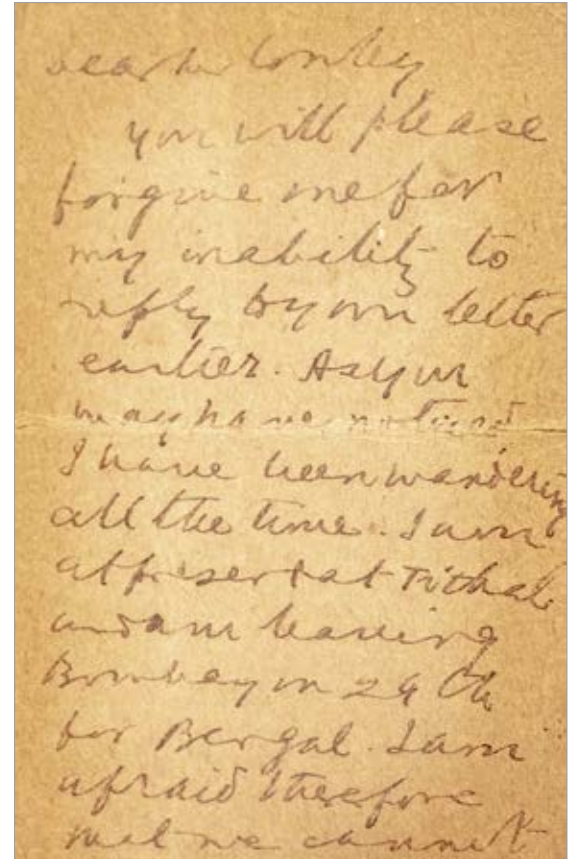 Dear Mr Conley
you will please
forgive me for
my inability to
reply to your letter
earlier. As you
may have noticed
I have been wandering
all the time. I am
at present at Tithal
and am leaving
Bombay on 29th
for Bengal. I am
afraid therefore
that we cannot